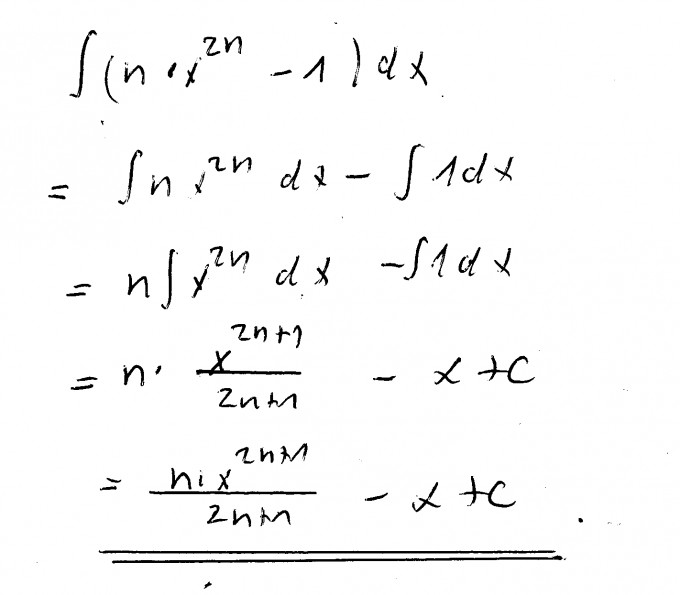 ∫(n · x^{2n} - 1) dx
= ∫ n x^{2n} dx - ∫ 1 dx
= n ∫ x^{2n} dx - ∫ 1 dx
= n · \frac{x^{2n+1}}{2n+1} - x + C
= \frac{n · x^{2n+1}}{2n+1} - x + C .